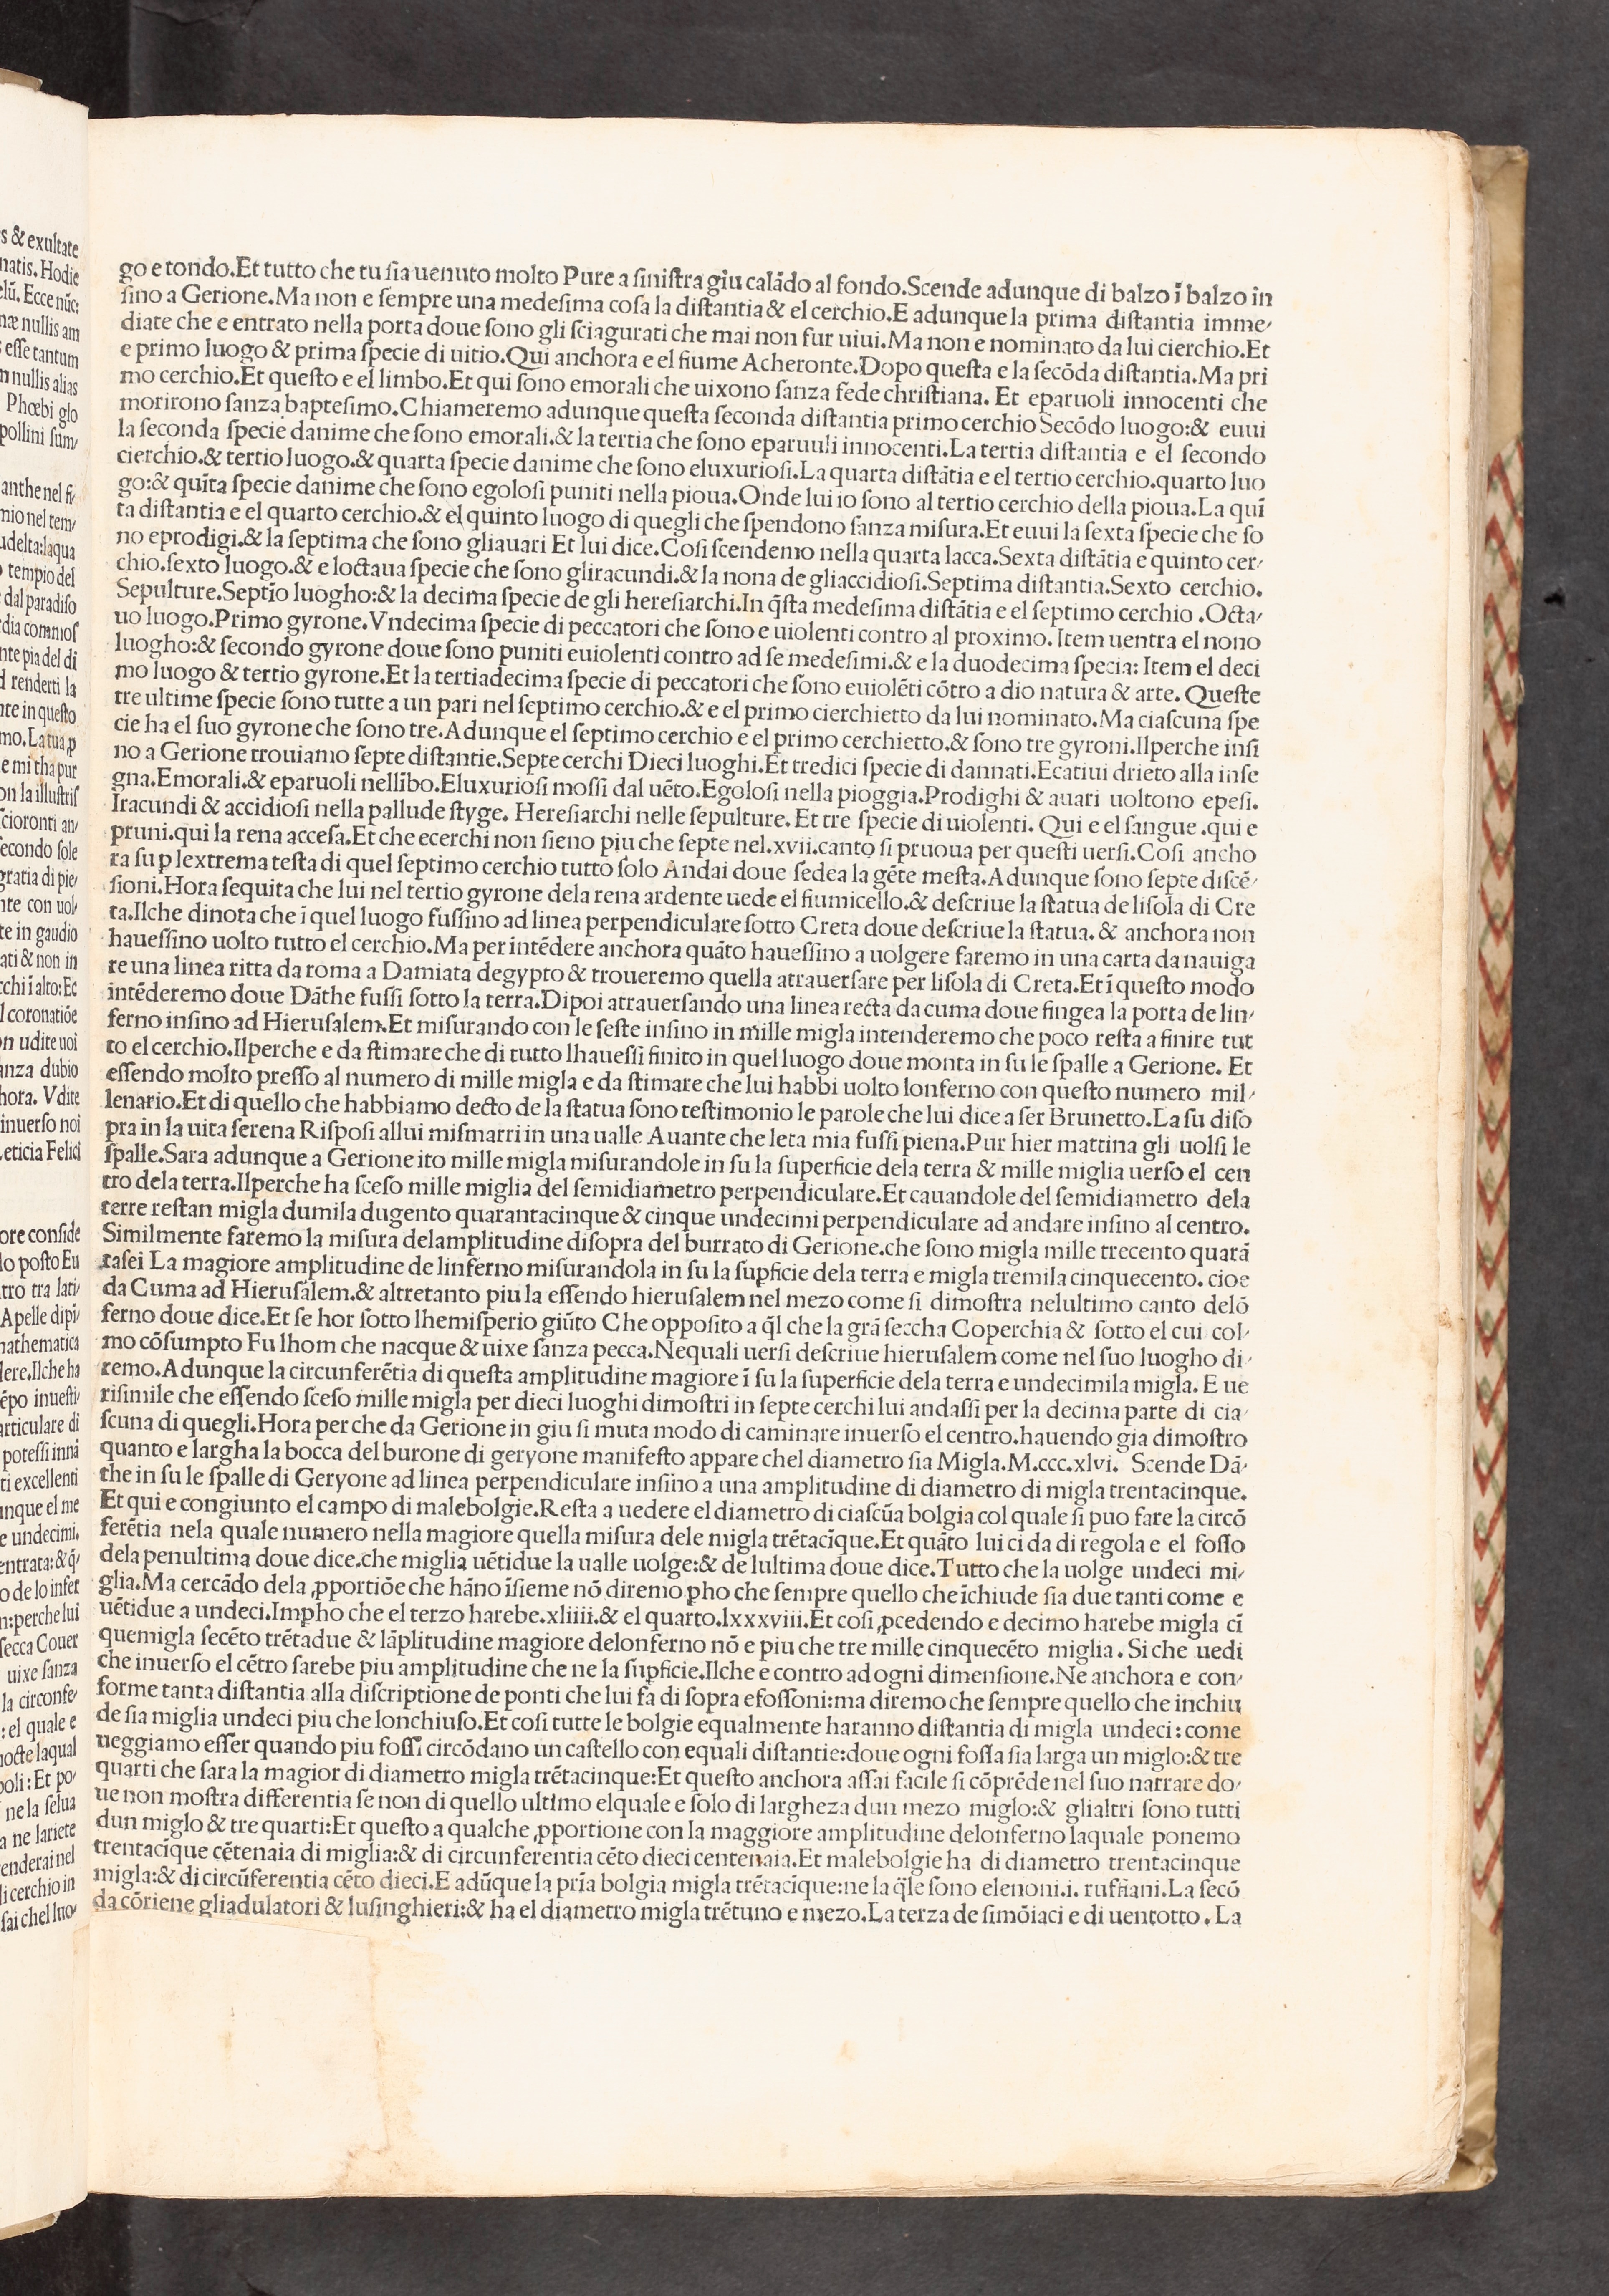 go e tondo.Et tutto che tu ſia uenuto molto Pure a ſiniſtra giu calādo al fondo.Scende adunque di balzo ī balzo in
ſino a Gerione.Ma non e ſempre una medeſima coſa la diſtantia & el cerchio.E adunque la prima diſtantia imme⸗
diate che e entrato nella porta doue ſono gli ſciagurati che mai non fur uiui.Ma non e nominato da lui cierchio.Et
e primo luogo & prima ſpecie di uitio.Qui anchora e el fiume Acheronte.Dopo queſta e la ſecōda diſtantia.Ma pri
mo cerchio.Et queſto e el limbo.Et qui ſono emorali che uixono ſanza fede chriſtiana. Et eparuoli innocenti che
morirono ſanza bapteſimo.Chiameremo adunque queſta ſeconda diſtantia primo cerchio Secōdo luogo:& euui
la ſeconda ſpecie danime che ſono emorali.& la tertia che ſono eparuuli innocenti.La tertia diſtantia e el ſecondo
cierchio.& tertio luogo.& quarta ſpecie danime che ſono eluxurioſi.La quarta diſtātia e el tertio cerchio.quarto luo
go:& quīta ſpecie danime che ſono egoloſi puniti nella pioua.Onde lui io ſono al tertio cerchio della pioua.La quī
ta diſtantia e el quarto cerchio.& el quinto luogo di quegli che ſpendono ſanza miſura.Et euui la ſexta ſpecie che ſo
no eprodigi.& la ſeptima che ſono gliauari Et lui dice.Coſi ſcendemo nella quarta lacca.Sexta diſtātia e quinto cer⸗
chio.ſexto luogo.& e loctaua ſpecie che ſono gliracundi.& la nona de gliaccidioſi.Septima diſtantia.Sexto cerchio.
Sepulture.Septīo luogho:& la decima ſpecie de gli hereſiarchi.In q̄ſta medeſima diſtātia e el ſeptimo cerchio .Octa⸗
uo luogo.Primo gyrone.Vndecima ſpecie di peccatori che ſono e uiolenti contro al proximo. Item uentra el nono
luogho:& ſecondo gyrone doue ſono puniti euiolenti contro ad ſe medeſimi.& e la duodecima ſpecia: Item el deci
mo luogo & tertio gyrone.Et la tertiadecima ſpecie di peccatori che ſono euiolēti cōtro a dio natura & arte. Queſte
tre ultime ſpecie ſono tutte a un pari nel ſeptimo cerchio.& e el primo cierchietto da lui nominato.Ma ciaſcuna ſpe
cie ha el ſuo gyrone che ſono tre.Adunque el ſeptimo cerchio e el primo cerchietto.& ſono tre gyroni.Ilperche inſi
no a Gerione trouiamo ſepte diſtantie.Septe cerchi Dieci luoghi.Et tredici ſpecie di dannati.Ecatiui drieto alla inſe
gna.Emorali.& eparuoli nellībo.Eluxurioſi moſſi dal uēto.Egoloſi nella pioggia.Prodighi & auari uoltono epeſi.
Iracundi & accidioſi nella pallude ſtyge. Hereſiarchi nelle ſepulture. Et tre ſpecie di uiolenti. Qui e el ſangue .qui e
pruni.qui la rena acceſa.Et che ecerchi non ſieno piu che ſepte nel.xvii.canto ſi pruoua per queſti uerſi.Coſi ancho
ra ſu ꝑ lextrema teſta di quel ſeptimo cerchio tutto ſolo Andai doue ſedea la gēte meſta.Adunque ſono ſepte diſcē⸗
ſioni.Hora ſequita che lui nel tertio gyrone dela rena ardente uede el fiumicello.& deſcriue la ſtatua de liſola di Cre
ta.Ilche dinota che ī quel luogo fuſſino ad linea perpendiculare ſotto Creta doue deſcriue la ſtatua. & anchora non
haueſſino uolto tutto el cerchio.Ma per intēdere anchora quāto haueſſino a uolgere faremo in una carta da nauiga
re una linea ritta da roma a Damiata degypto & troueremo quella atrauerſare per liſola di Creta.Et ī queſto modo
intēderemo doue Dāthe fuſſi ſotto la terra.Dipoi atrauerſando una linea recta da cuma doue fingea la porta de lin⸗
ferno inſino ad Hieruſalem.Et miſurando con le ſeſte inſino in mille migla intenderemo che poco reſta a finire tut
to el cerchio.Ilperche e da ſtimare che di tutto lhaueſſi finito in quel luogo doue monta in ſu le ſpalle a Gerione. Et
eſſendo molto preſſo al numero di mille migla e da ſtimare che lui habbi uolto lonferno con queſto numero mil⸗
lenario.Et di quello che habbiamo decto de la ſtatua ſono teſtimonio le parole che lui dice a ſer Brunetto.La ſu diſo
pra in la uita ſerena Riſpoſi allui miſmarri in una ualle Auante che leta mia fuſſi piena.Pur hier mattina gli uolſi le
ſpalle.Sara adunque a Gerione ito mille migla miſurandole in ſu la ſuperficie dela terra & mille miglia uerſo el cen
tro dela terra.Ilperche ha ſceſo mille miglia del ſemidiametro perpendiculare.Et cauandole del ſemidiametro dela
terre reſtan migla dumila dugento quarantacinque & cinque undecimi perpendiculare ad andare inſino al centro.
Similmente faremo la miſura delamplitudine diſopra del burrato di Gerione.che ſono migla mille trecento quarā
taſei La magiore amplitudine de linferno miſurandola in ſu la ſuꝑficie dela terra e migla tremila cinquecento. cioe
da Cuma ad Hieruſalem.& altretanto piu la eſſendo hieruſalem nel mezo come ſi dimoſtra nelultimo canto delō
ferno doue dice.Et ſe hor ſotto lhemiſperio giūto Che oppoſito a q̄l che la grā ſeccha Coperchia & ſotto el cui col⸗
mo cōſumpto Fu lhom che nacque & uixe ſanza pecca.Nequali uerſi deſcriue hieruſalem come nel ſuo luogho di⸗
remo.Adunque la circunferētia di queſta amplitudine magiore ī ſu la ſuperficie dela terra e undecimila migla. E ue
riſimile che eſſendo ſceſo mille migla per dieci luoghi dimoſtri in ſepte cerchi lui andaſſi per la decima parte di cia⸗
ſcuna di quegli.Hora per che da Gerione in giu ſi muta modo di caminare inuerſo el centro.hauendo gia dimoſtro
quanto e largha la bocca del burone di geryone manifeſto appare chel diametro ſia Migla.M.ccc.xlvi. Scende Dā⸗
the in ſu le ſpalle di Geryone ad linea perpendiculare inſino a una amplitudine di diametro di migla trentacinque.
Et qui e congiunto el campo di malebolgie.Reſta a uedere el diametro di ciaſcūa bolgia col quale ſi puo fare la circō
ferētia nela quale numero nella magiore quella miſura dele migla trētacīque.Et quāto lui ci da di regola e el foſſo
dela penultima doue dice.che miglia uētidue la ualle uolge:& de lultima doue dice.Tutto che la uolge undeci mi⸗
glia.Ma cercādo dela ꝓportiōe che hāno īſieme nō diremo ꝑho che ſempre quello che īchiude ſia due tanti come e
uētidue a undeci.Impho che el terzo harebe.xliiii.& el quarto.lxxxviii.Et coſi ꝓcedendo e decimo harebe migla cī
quemigla ſecēto trētadue & lāplitudine magiore delonferno nō e piu che tre mille cinquecēto miglia . Si che uedi
che inuerſo el cētro ſarebe piu amplitudine che ne la ſuꝑficie.Ilche e contro ad ogni dimenſione.Ne anchora e con⸗
forme tanta diſtantia alla diſcriptione de ponti che lui fa di ſopra efoſſoni:ma diremo che ſempre quello che inchiu
de ſia miglia undeci piu che lonchiuſo.Et coſi tutte le bolgie equalmente haranno diſtantia di migla undeci: come
ueggiamo eſſer quando piu foſſi circōdano un caſtello con equali diſtantie:doue ogni foſſa ſia larga un miglo:& tre
quarti che ſara la magior di diametro migla trētacinque:Et queſto anchora aſſai facile ſi cōprēde nel ſuo narrare do⸗
ue non moſtra differentia ſe non di quello ultimo elquale e ſolo di largheza dun mezo miglo:& glialtri ſono tutti
dun miglo & tre quarti:Et queſto a qualche ꝓportione con la maggiore amplitudine delonferno laquale ponemo
trentacīque cētenaia di miglia:& di circunferentia cēto dieci centenaia.Et malebolgie ha di diametro trentacinque
migla:& di circūferentia cēto dieci.E adūque la prīa bolgia migla trētacīque:ne la q̄le ſono elenoni.i. ruffiani.La ſecō
da cōtiene gliadulatori & luſinghieri:& ha el diametro migla trētuno e mezo.La terza de ſimōiaci e di uentotto . La